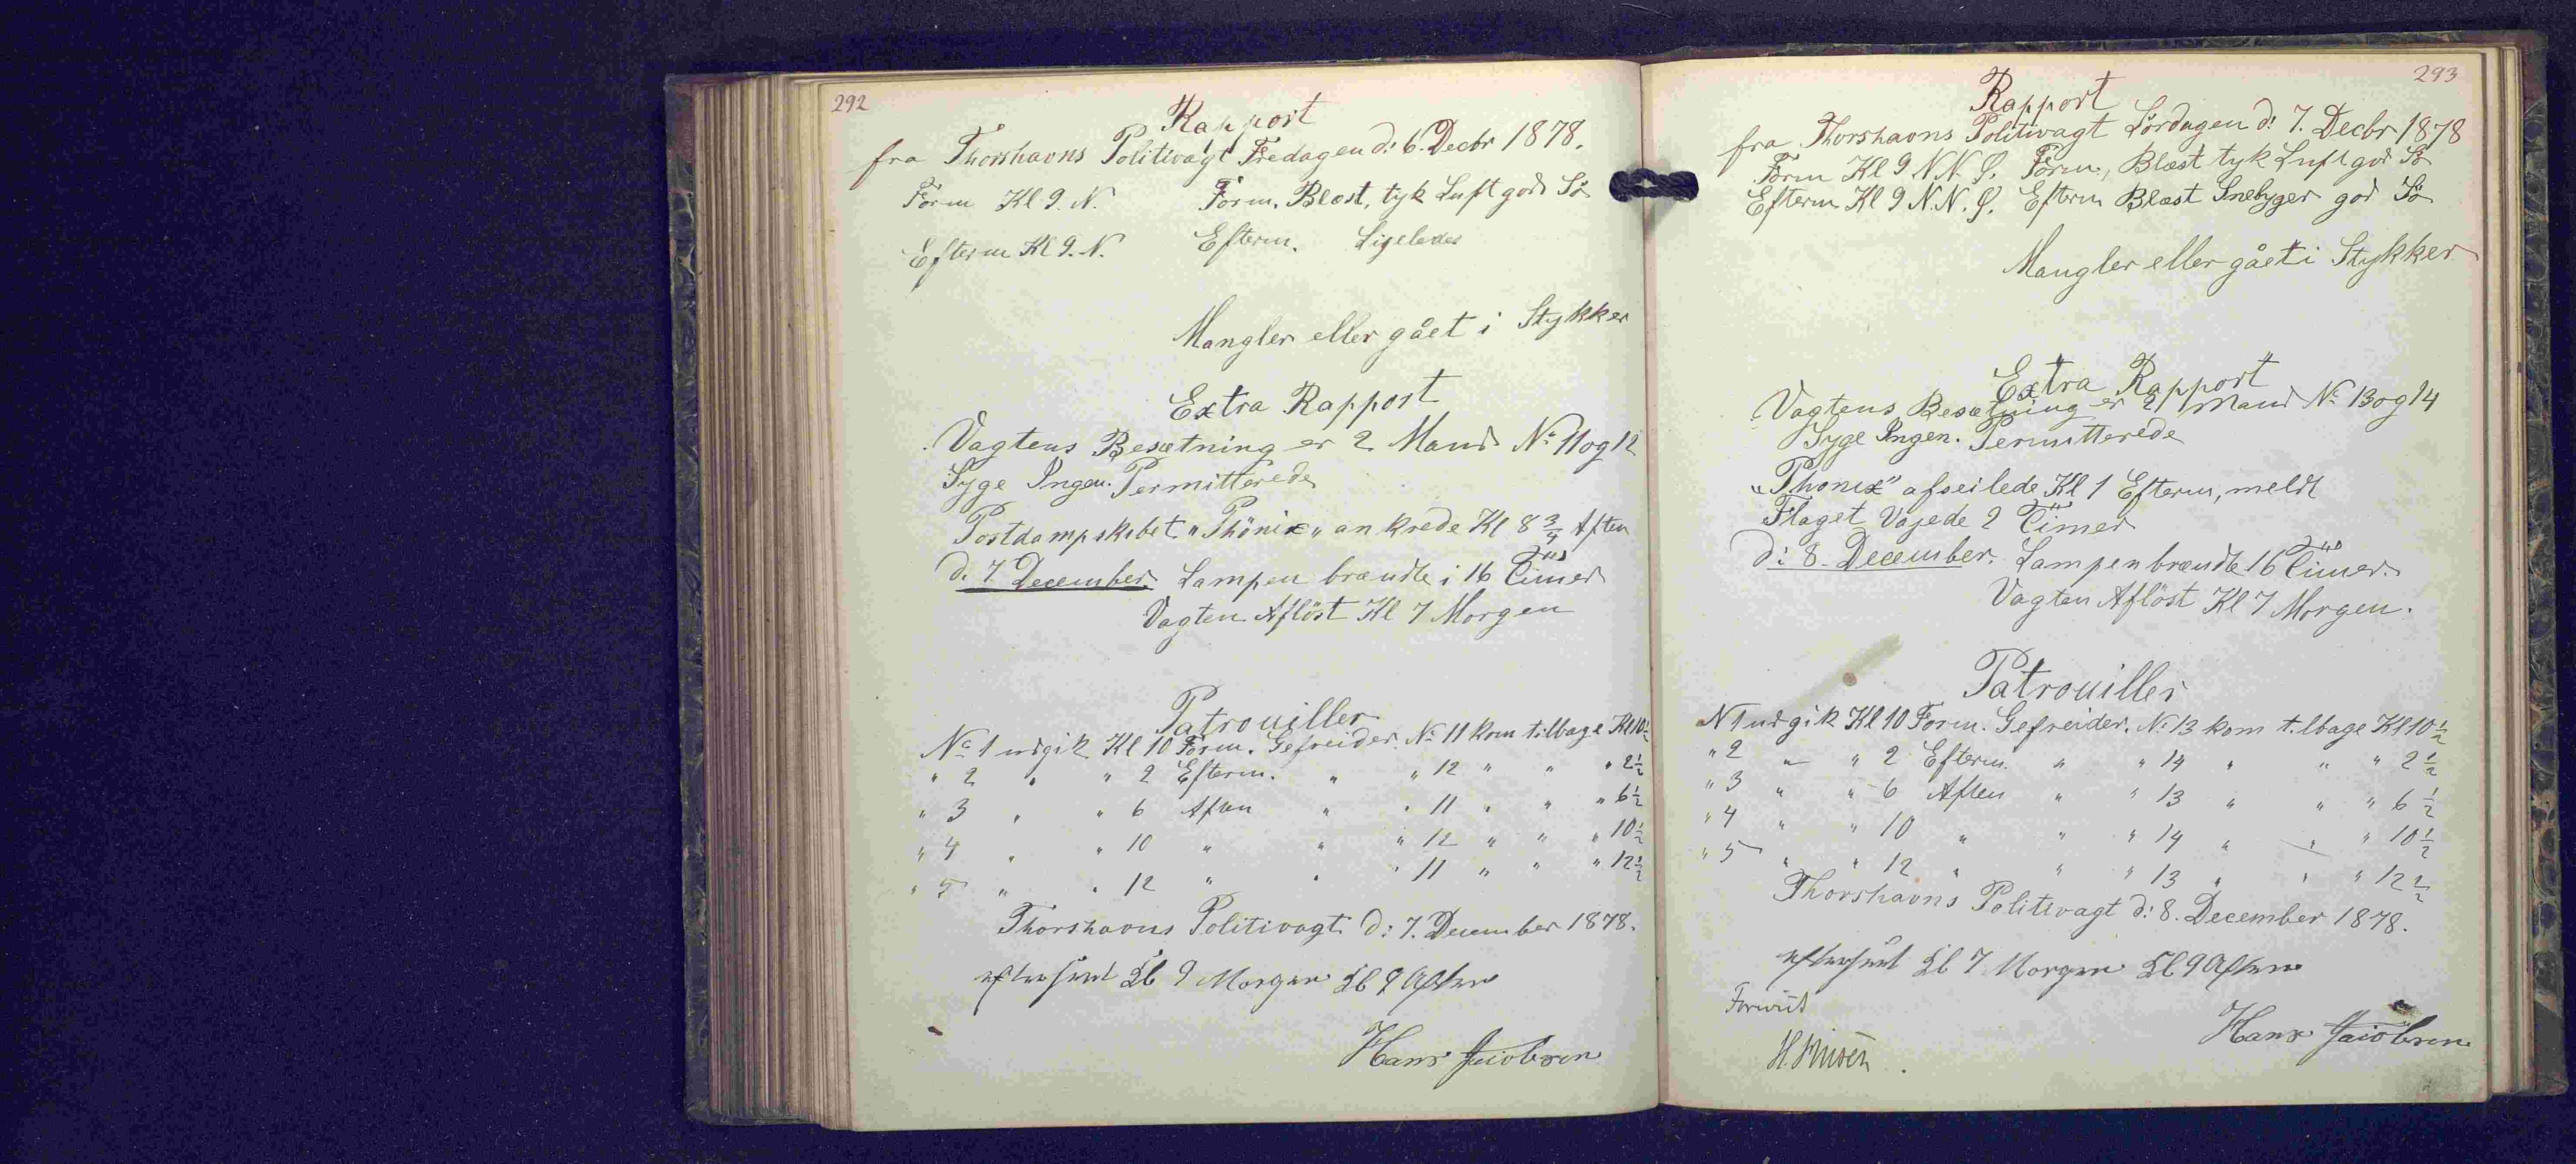 292
Rapport
fra Thorshavns Politivagt Fredagen d: 6. Decbr 1878.
Form Kl 9. N. Form. Blæst, tyk Luft god Sö
Efterm Kl 9. N. Efterm. Ligeledes
Mangler eller gået i Stykker
Extra Rapport
Vagtens Besætning er 2 Mand No 11 og 12
Syge Ingen. Permitterede
Postdampskibet "Phönix" ankrede Kl 8 3/4 Aften
d. 7 December Lampen brændte i 16 Timer
Vagten Aflöst Kl 7 Morgen
Patrouiller
No 1 udgik Kl 10 Form. Gefreider. No 11 kom tilbage Kl 10 1/2
" 2 " " 2 Efterm. " " 12 " " " 2 1/2
" 3 " " 6 Aften " " 11 " " " 6 1/2
" 4 " " 10 " " " 12 " " " 10 1/2
" 5 " " 12 " " " 11 " " " 12 1/2
Thorshavns Politivagt d: 7. December 1878.
efterseet Kl 9 Morgen Kl 9 Aften
Hans Jacobsen
293
Rapport
fra Thorshavns Politivagt Lördagen d: 7. Decbr 1878
Form Kl 9 N.N.Ø. Form, Blæst tyk Luft god Sö
Efterm Kl 9 N.N.Ø. Efterm Blæst Snebyger god Sö
Mangler eller gået i Stykker
Extra Rapport
Vagtens Besætning er 2 Mand No 13 og 14
Syge Ingen. Permitterede
"Phonix" afseilede Kl 1 Efterm, meldt
Flaget Vajede 2 Timer
d: 8. December. Lampen brændte 16 Timer.
Vagten Aflöst Kl 7 Morgen.
Patrouiller
N 1 udgik Kl 10 Form. Gefreider. No 13 kom tilbage Kl 10 1/2
" 2 " " 2 Efterm " " 14 " " " 2 1/2
" 3 " " 6 Aften " " 13 " " " 6 1/2
" 4 " " 10 " " " 14 " " " 10 1/2
" 5 " " 12 " " " 13 " " " 12 1/2
Thorshavns Politivagt d: 8. December 1878.
efterseet Kl 7 Morgen Kl 9 Aften
Forevist
Hans Jacobsen